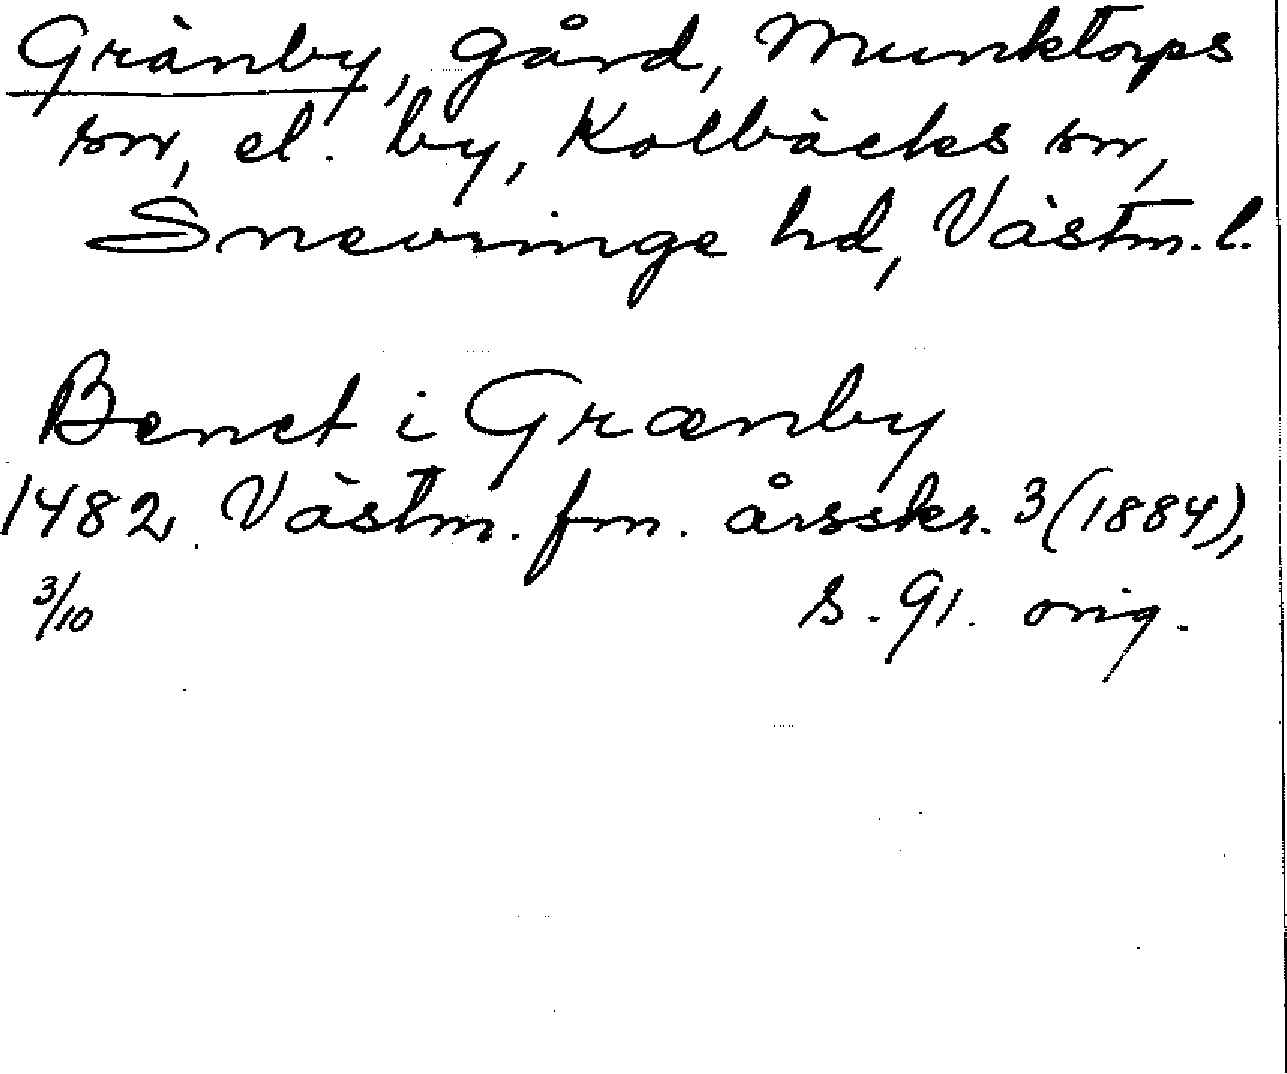 Gränby, gård, Munktorps
sn, el. by, Kolbäcks sn,
Snevringe hd, Västm. l.
Benct i Grænby
1482. Västm. fm. årsskr. 3 (1884),
3/10 s. 91. orig.